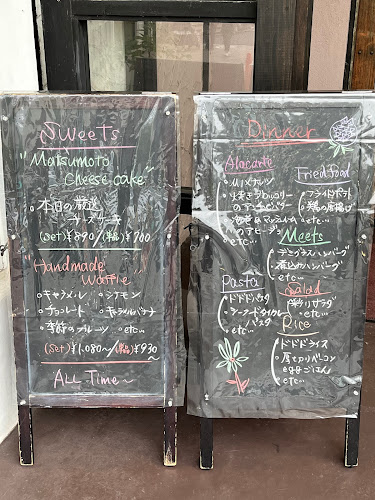 Sweets
"Matsumoto
Cheese cake"
本日の厳選
チーズケーキ
(Set) ¥890/(単品) ¥700
Handmade
Waffle
○キャラメル ○シナモン
○チョコレート ○キャラメルバナナ
○季節のフルーツ ○etc…
(Set) ¥1,080〜/(単品) ¥930
ALL Time〜
Dinner
Alacarte
○ミックスナッツ
○etc…
Fried food
○フライドポテト
○鶏の唐揚げ
etc…
Meets
○デミグラスハンバーグ
○煮込みハンバーグ
etc…
Pasta
○ドドドパスタ
○シーフードタイカレー
パスタ
○etc…
Salad
サラダ
etc…
Rice
○ドドドライス
○厚切りベーコン
eggごはん
etc…